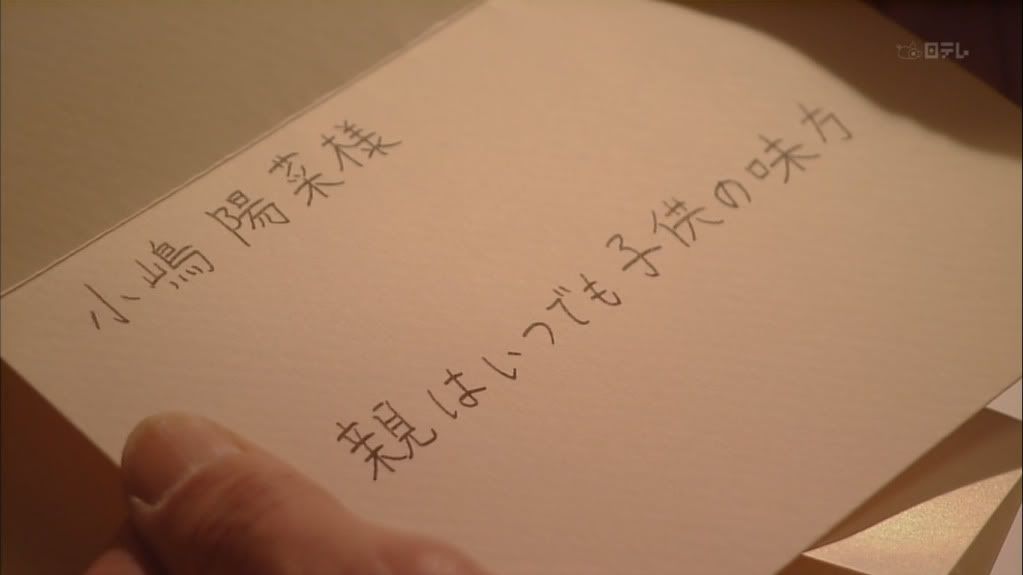 日テレ
小嶋陽菜様
親はいつでも子供の味方